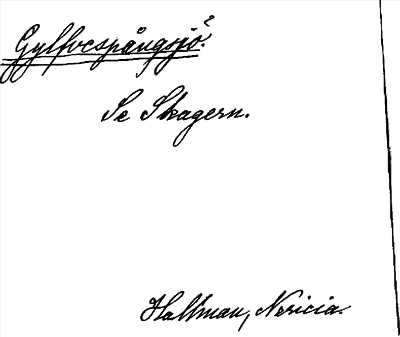 Gylfocspångsjö?
Se Skagern.
Hallman, Nericia.